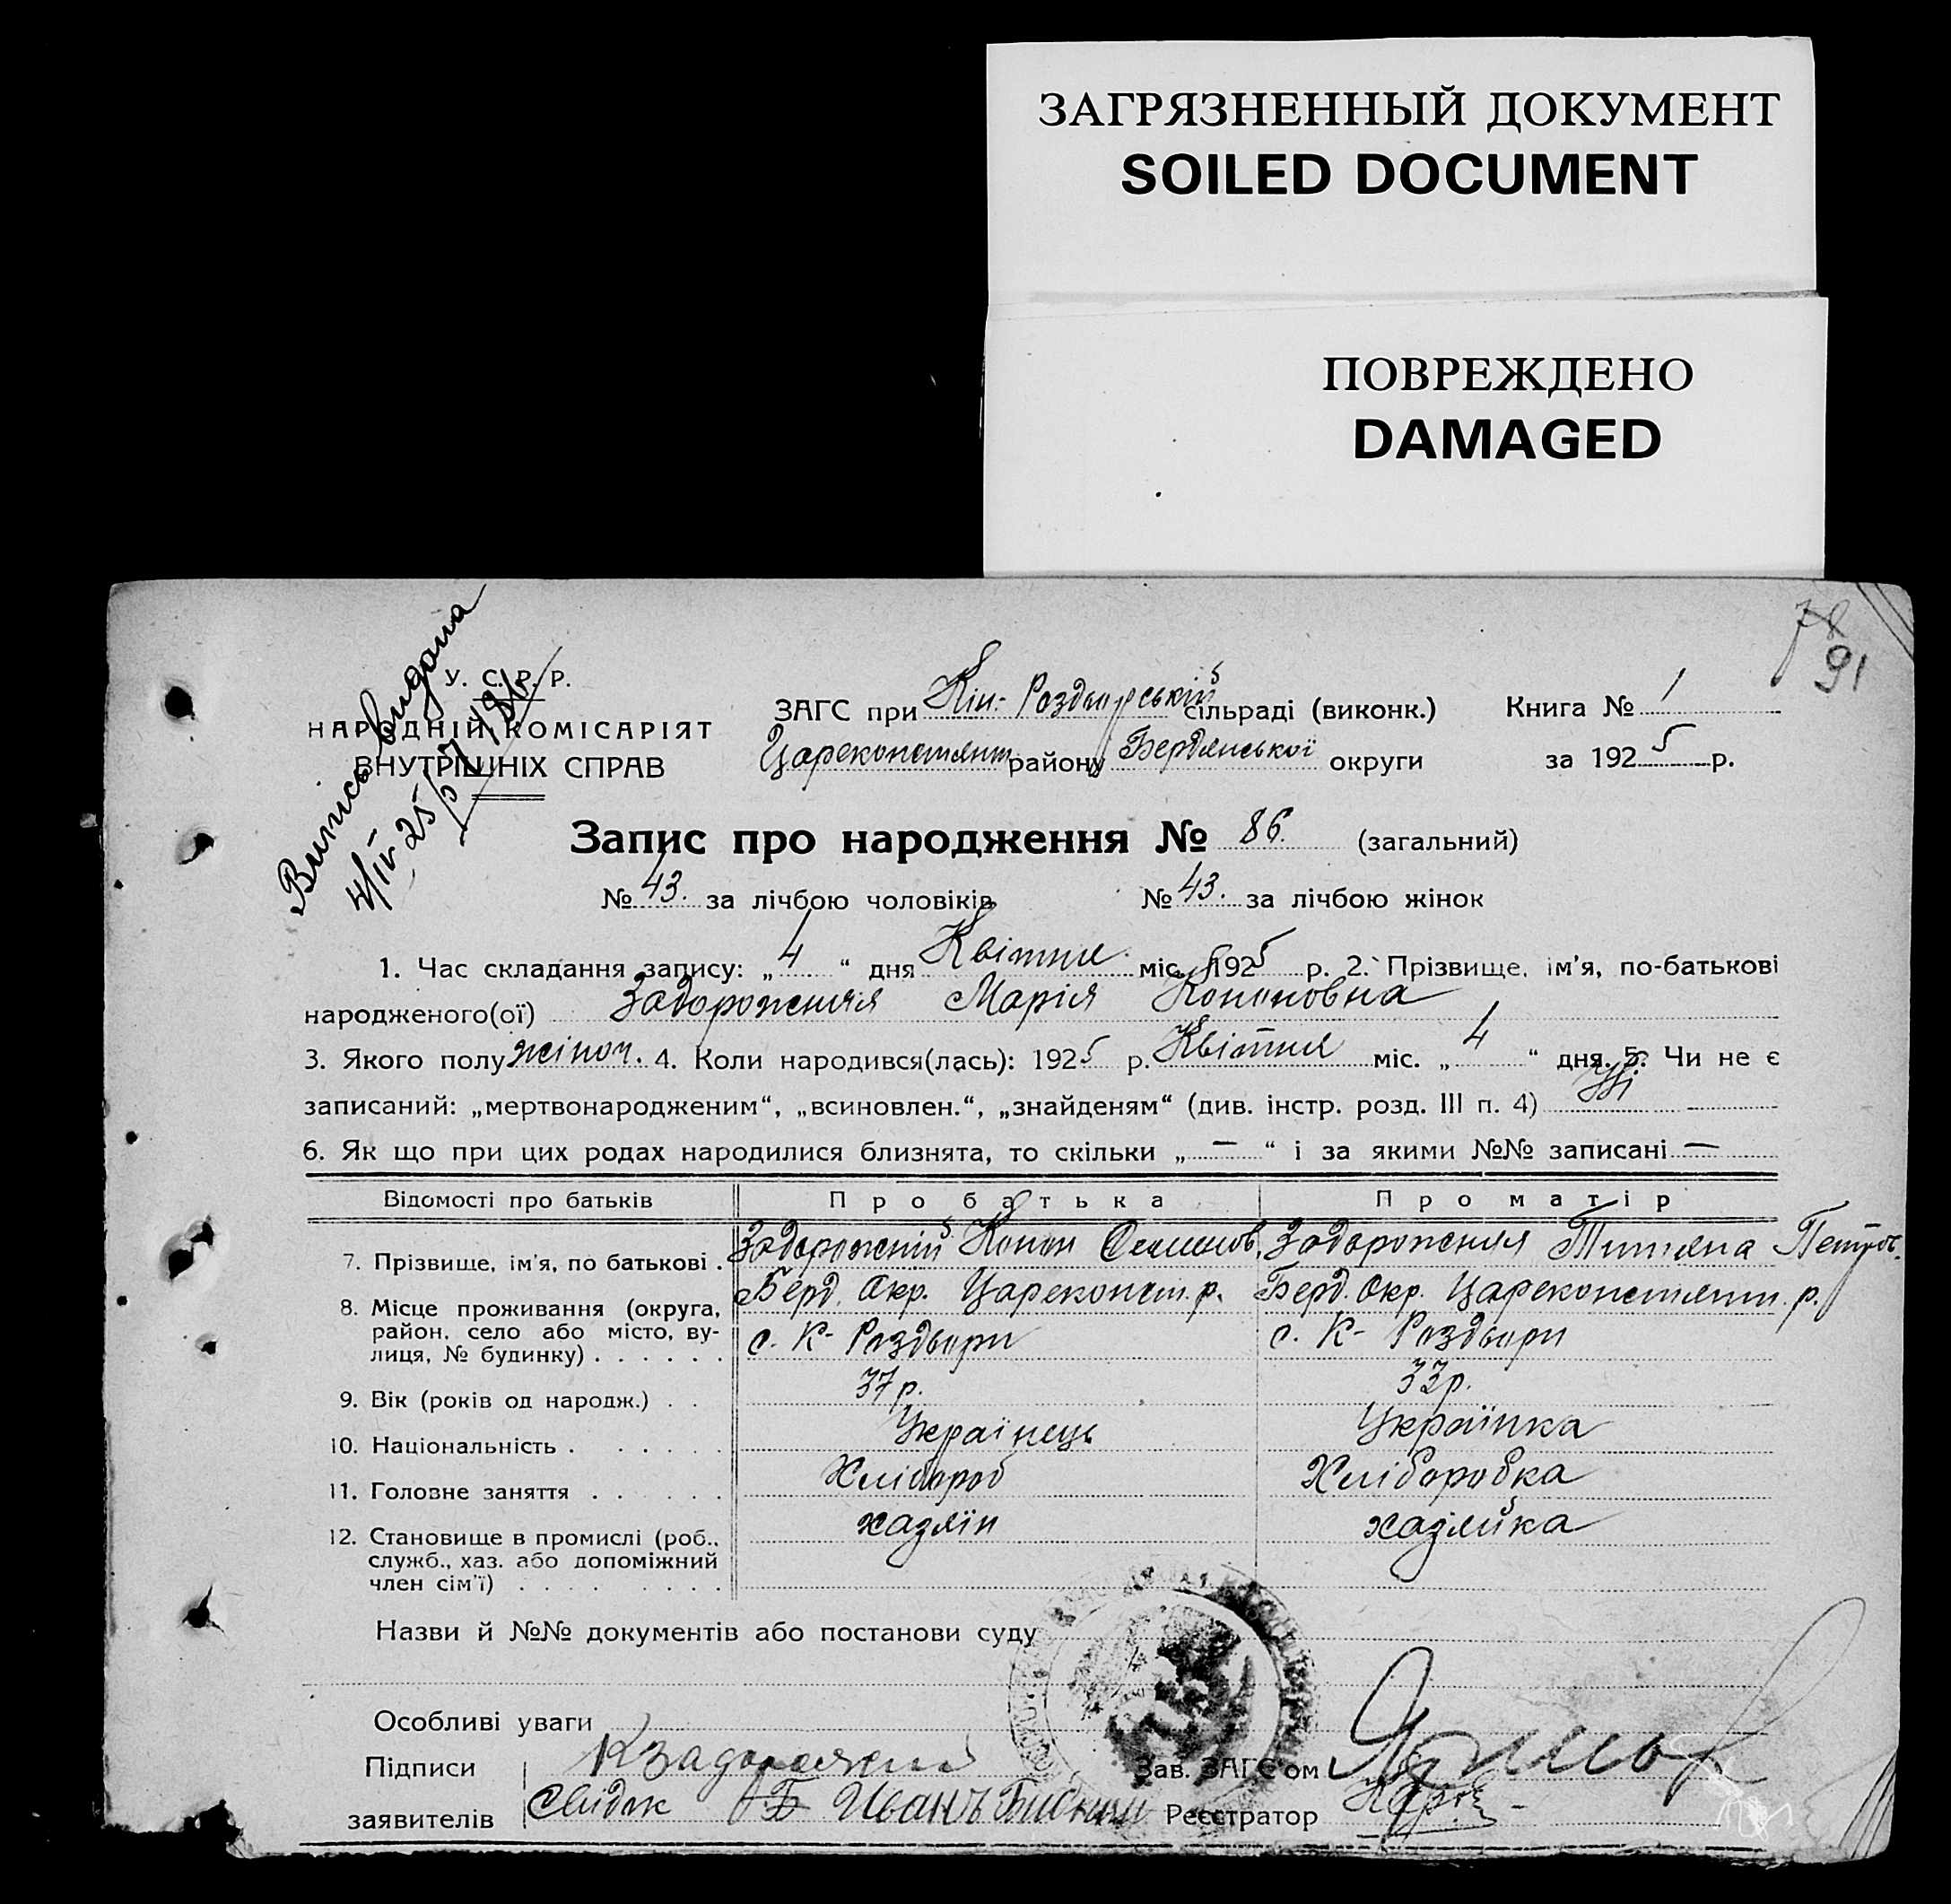 ЗАГРЯЗНЕННЫЙ ДОКУМЕНТ
SOILED DOCUMENT
ПОВРЕЖДЕНО
DAMAGED
78
91
Випись видана
4/IV 25 р
У. С. Р. Р.
НАРОДНІЙ КОМІСАРІЯТ
ВНУТРІШНІХ СПРАВ
ЗАГС при Кін-Роздорській сільраді (виконк.) Книга № 1
Цареконстянт району Бердянської округи за 1925 р.
Запис про народження № 86. (загальний)
№ 43. за лічбою чоловіків № 43. за лічбою жінок
1. Час складання запису: „4“ дня Квітня міс. 1925 р. 2. Прізвище, ім'я, по-батькові
народженого(ої) Задорожняя Марія Кононовна
3. Якого полу жіноч. 4. Коли народився(лась): 1925 р. Квітня міс. „4“ дня. 5. Чи не є
записаний: „мертвонародженим“, „всиновлен.“, „знайденям“ (див. інстр. розд. III п. 4) Ні
6. Як що при цих родах народилися близнята, то скільки „—“ і за якими №№ записані —
Відомості про батьків Про батька Про матір
7. Прізвище, ім'я, по батькові . Задорожній Конон Семенов. Задорожняя Титяна Петров.
8. Місце проживання (округа, Берд. Окр. Цареконст. р. Берд. Окр. Цареконстянт. р.
район, село або місто, ву-
лиця, № будинку) . . . . . . с. К- Роздори с. К- Роздори
9. Вік (років од народж.) . . 37 р. 33 р.
10. Національність . . . . . . Українець Українка
11. Головне заняття . . . . . Хлібороб Хліборобка
12. Становище в промислі (роб., хазяїн хазяйка
служб., хаз. або допоміжний
член сім'ї) . . . . . . . .
Назви й №№ документів або постанови суду
Особливі уваги
Підписи К Задорожний Зав. ЗАГС'ом
заявителів Свідок Иванъ Реєстратор